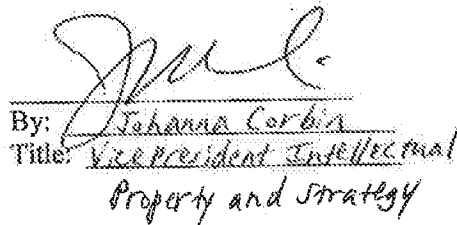 By: Johanna Corbin
Title: Vice President Intellectual
Property and Strategy